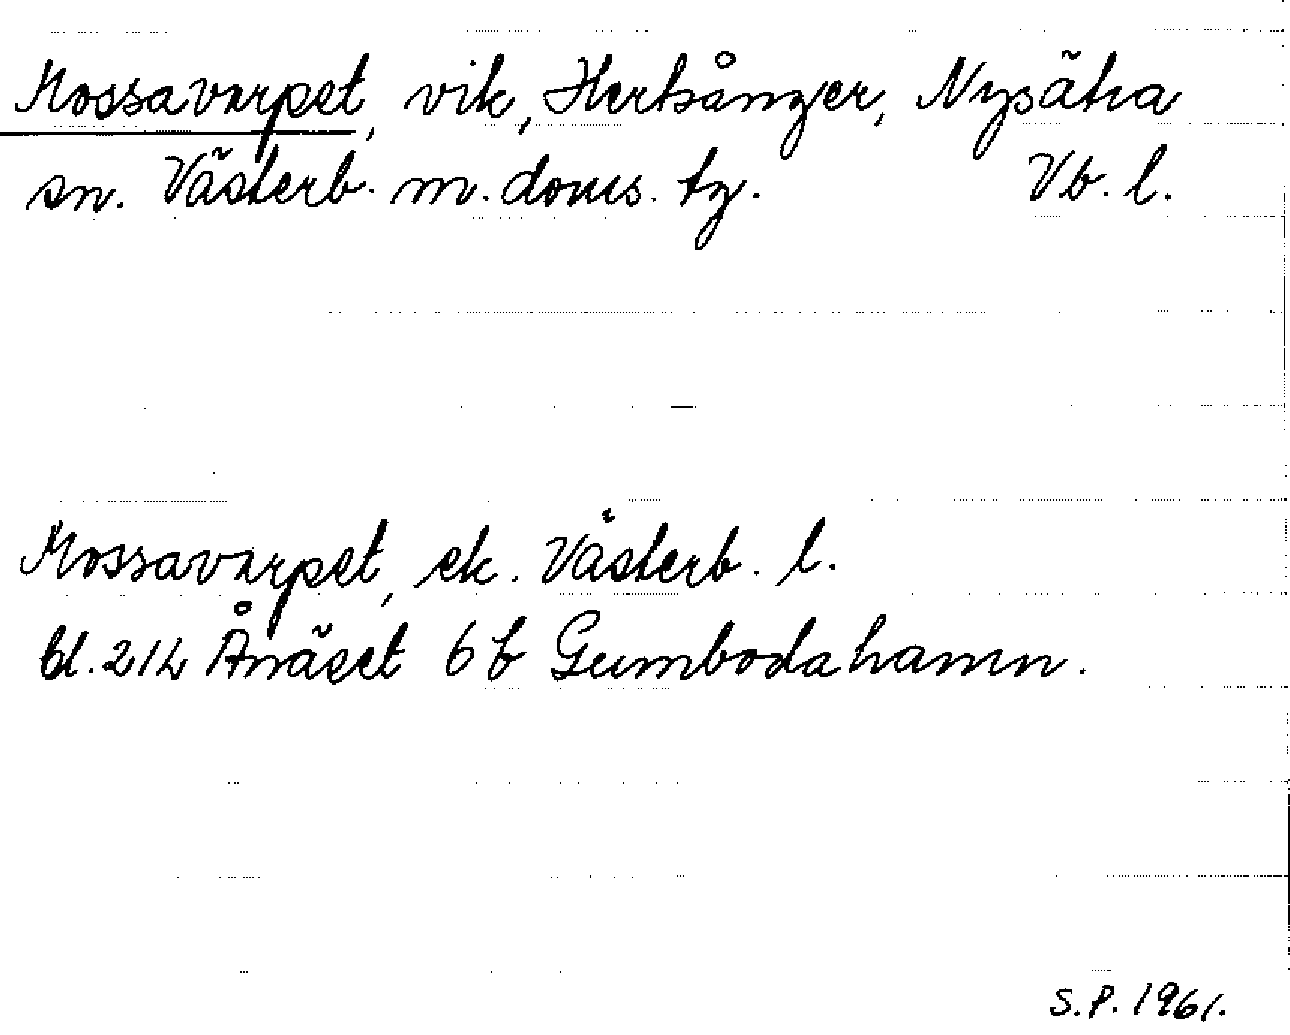 Mossavarpet, vik, Hertsånger, Nysätra
sn. Västerb. m. doms. tg. Vb. l.
Mossavarpet, ek. Västerb. l.
bl. 21L Ånäset 6 b Gumbodahamn.
S.P. 1961.